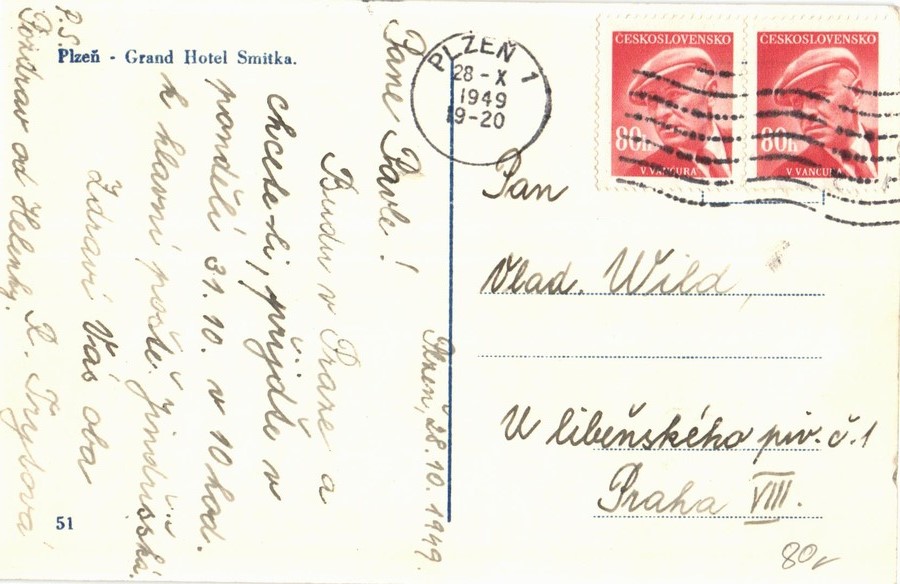 Plzeň - Grand Hotel Smitka.
Plzeň, 28.10.1949.
Pane Pavle!
Budu v Praze a
chcete-li, přijďte v
pondělí 31.10. v 10 hod.
k hlavní poště. Jindřišská
Zdraví Vás oba
R. Trybová
P.S.
Pozdrav od Helenky.
51
PLZEŇ 1
28-X
1949
19-20
ČESKOSLOVENSKO
80h
V. VANČURA
ČESKOSLOVENSKO
80h
V. VANČURA
Pan
Vlad. Wild,
U libeňského piv. č.1
Praha VIII.
80